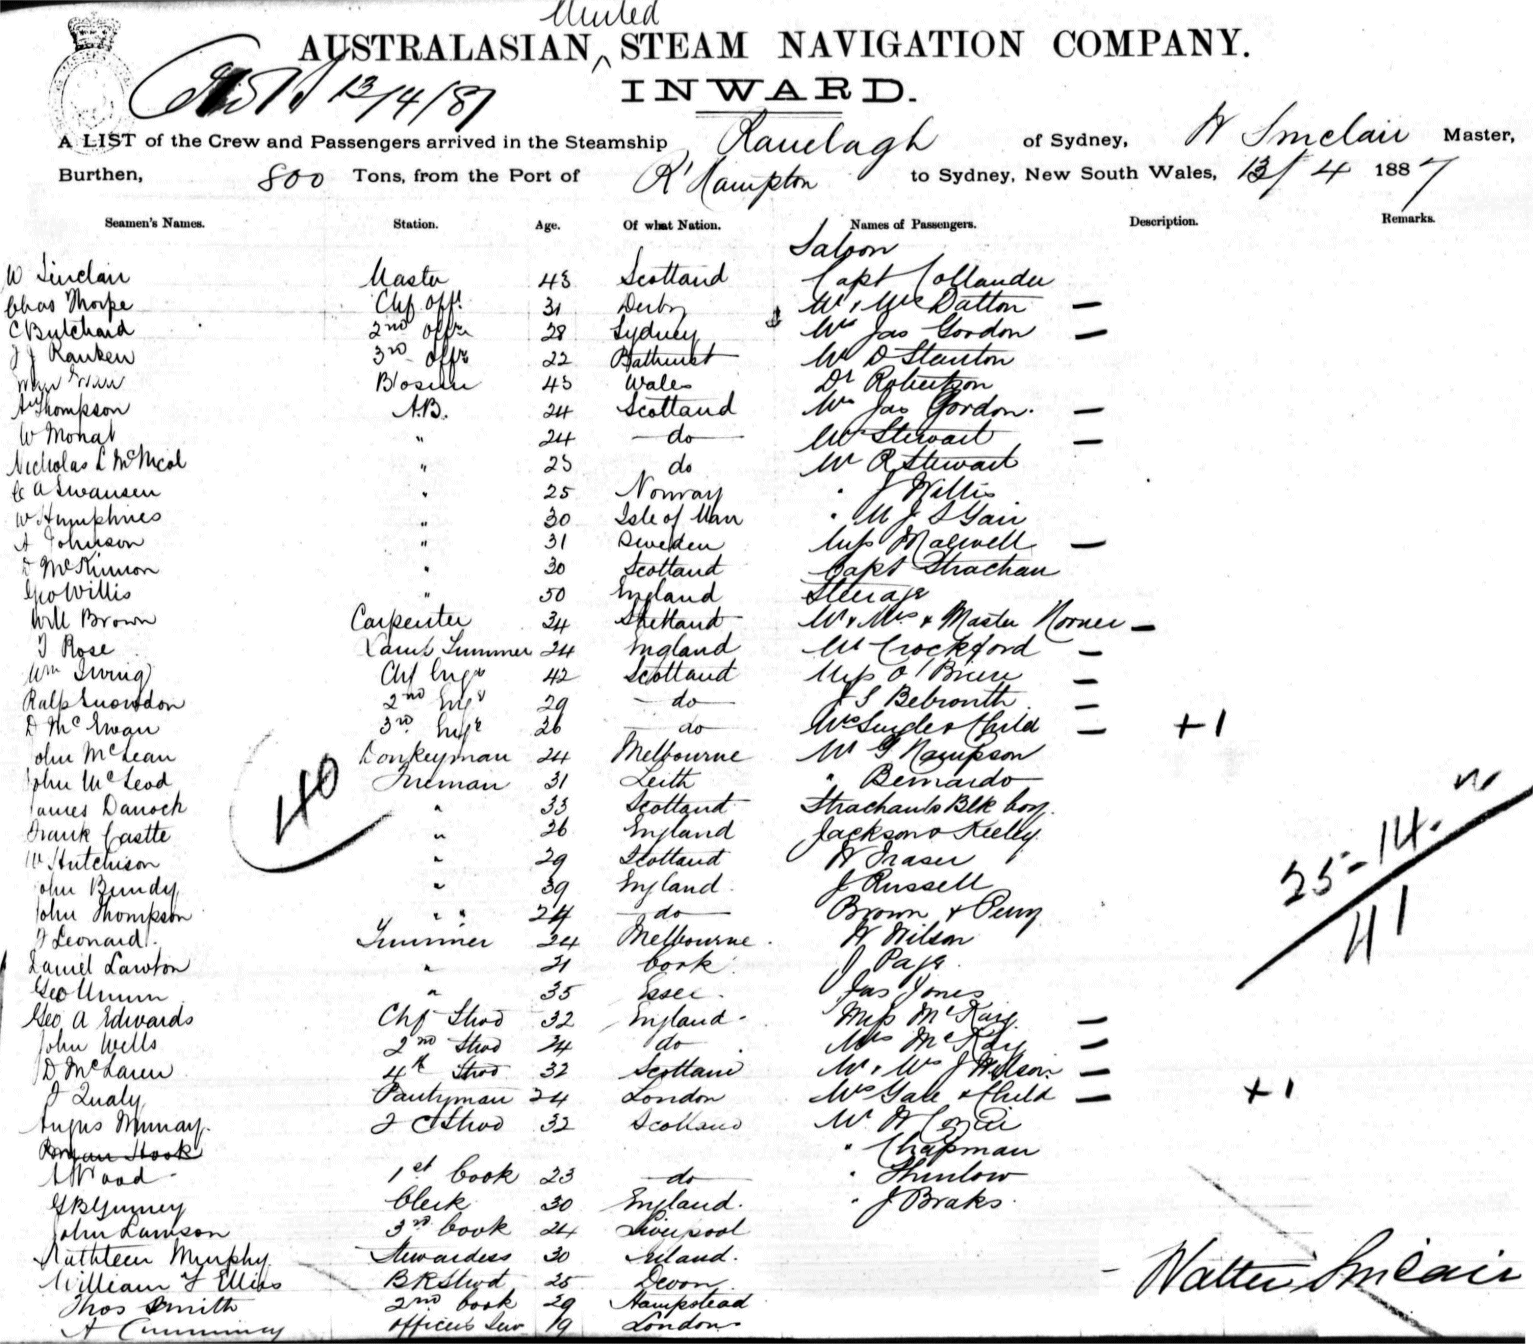 United
AUSTRALASIAN ^ STEAM NAVIGATION COMPANY.
13/4/87
INWARD.
A LIST of the Crew and Passengers arrived in the Steamship Ranelagh of Sydney, W Sinclair Master,
Burthen, 800 Tons, from the Port of R'Hampton to Sydney, New South Wales, 13/4 1887
Seamen's Names. Station. Age. Of what Nation. Names of Passengers. Description. Remarks.
Saloon
W Sinclair Master 43 Scotland Capt Collander
Chas Thorpe Chf Offr 31 Derby Mr & Mrs Datton —
C Butchard 2nd Offr 28 Sydney Mrs Jas Gordon —
J J Ranken 3rd Offr 22 Bathurst Mr D Stanton
Bosun 43 Wales Dr Robertson
Thompson A.B. 24 Scotland Mrs Jas Gordon. —
W Monat " 24 do Stewart —
Nicholas L McNicol " 25 do Mr R Stewart
C A Swansen " 25 Norway " J Willis
W Humphries " 30 Isle of Man " M J S Gair
A Johnson " 31 Sweden Miss Maxwell —
D McKinnon " 30 Scotland Capt Strachan
Geo Willis " 50 England Steerage
Will Brown Carpenter 34 Shetland Mr & Mrs & Master Horner —
T Rose Lamp Trimmer 24 England Crockford —
Wm Irving Chf Engr 42 Scotland Miss O'Brien —
Ralp Snowdon 2nd Engr 29 do J S Bebronth —
D McEwan 3rd Engr 26 do Mrs Snyder & Child — +1
John McLean Donkeyman 24 Melbourne Mr G Hampson
John McLeod Fireman 31 Leith " Bernardo
40
James Danoch " 33 Scotland Strachan's Blk boy.
Frank Castle " 26 England Jackson & Keeley
W Hutchison " 29 Scotland W Fraser
25-14
John Bundy " 39 England. J Russell
John Thompson " " 24 do Brown & Perry
41
J Leonard. Trimmer 24 Melbourne. W Wilson
Daniel Lawton " 21 Cork J Page.
Geo " 35 Essex. Jas Jones
Geo A Edwards Chf Stwd 32 England Miss McKay —
John Wells 2nd Stwd 24 do Mrs McKay —
D McLaren 4th Stwd. 32 Scotland Mr & Mrs J Wilson —
J Qualy Pantryman 24 London Mrs Gale & Child — +1
Angus Murray. F C Stwd 32 Scotland Mr W
Hook " Chapman
A Wood 1st Cook 23 do " Thurlow
G B Gurney Clerk 30 England. " J Braks.
John Lawson 3rd Cook 24 Liverpool
Kathleen Murphy Stewardess 30 Ireland.
William F Ellias BR Stwd 25 Devon
Walter Sinclair
Thos Smith 2nd Cook 29 Hampstead
A Cumming Officers Serv 19 London